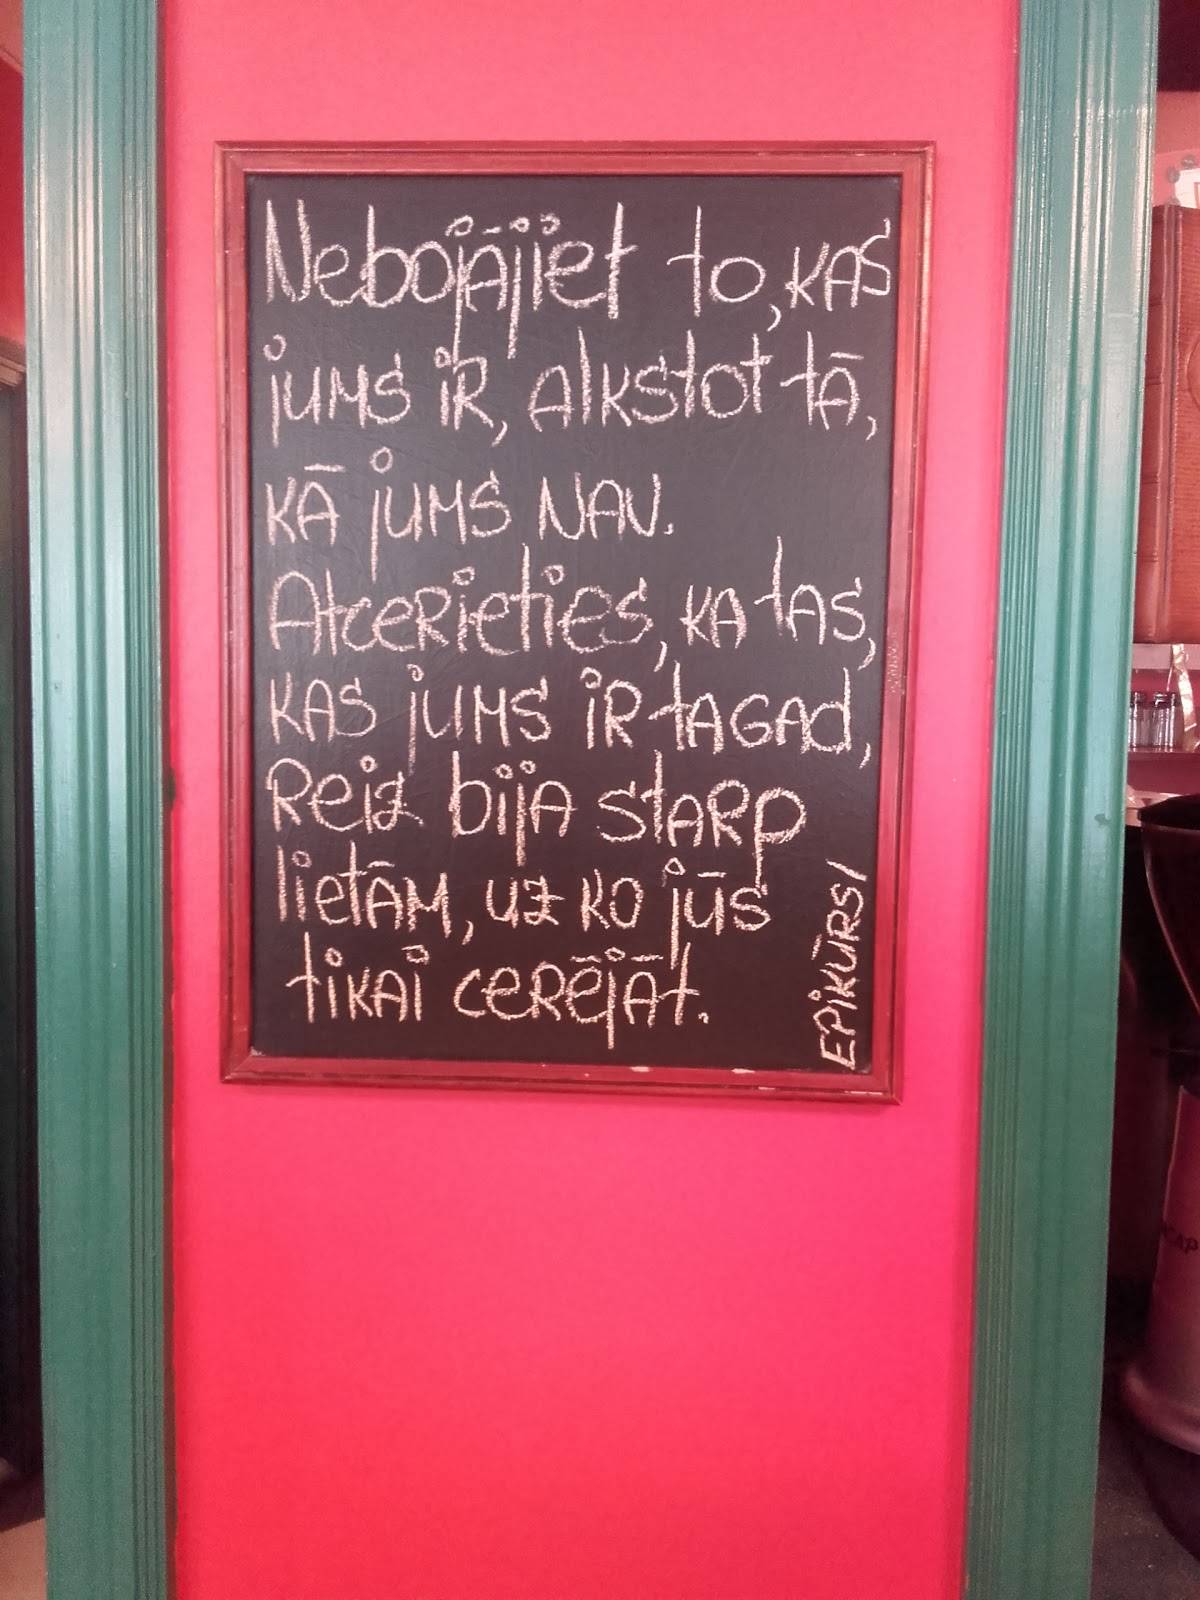 Nebojājiet to, kas
jums ir, alkstot tā,
kā jums nav.
Atcerieties, ka tas,
kas jums ir tagad,
Reiz bija starp
lietām, uz ko jūs
tikai cerējāt.
EPiKŪRS/